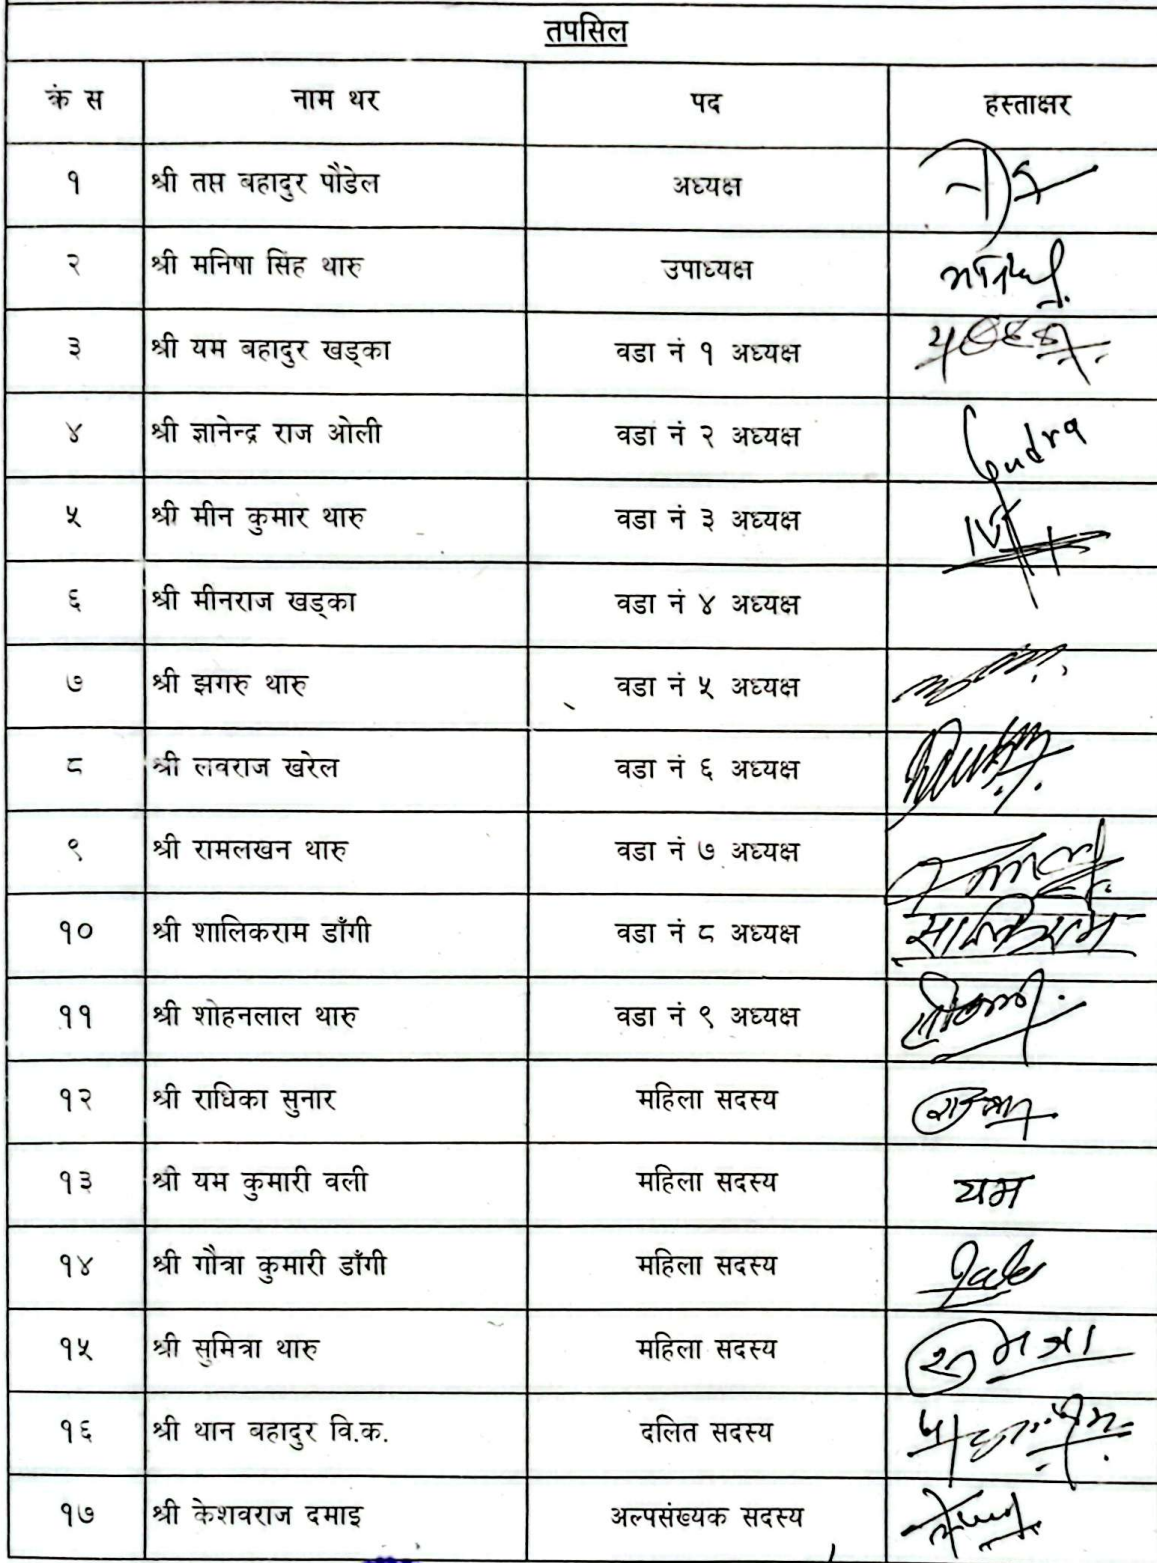 तपसिल
क्रं स नाम थर पद हस्ताक्षर
१ श्री तप्त बहादुर पौडेल अध्यक्ष
२ श्री मनिषा सिंह थारु उपाध्यक्ष
३ श्री यम बहादुर खड्का वडा नं १ अध्यक्ष
४ श्री ज्ञानेन्द्र राज ओली वडा नं २ अध्यक्ष
५ श्री मीन कुमार थारु वडा नं ३ अध्यक्ष
६ श्री मीनराज खड्का वडा नं ४ अध्यक्ष
७ श्री झगरु थारु वडा नं ५ अध्यक्ष
८ श्री लवराज खरेल वडा नं ६ अध्यक्ष
९ श्री रामलखन थारु वडा नं ७ अध्यक्ष
१० श्री शालिकराम डाँगी वडा नं ८ अध्यक्ष
११ श्री शोहनलाल थारु वडा नं ९ अध्यक्ष
१२ श्री राधिका सुनार महिला सदस्य
१३ श्री यम कुमारी वली महिला सदस्य यम
१४ श्री गौत्रा कुमारी डाँगी महिला सदस्य
१५ श्री सुमित्रा थारु महिला सदस्य
१६ श्री थान बहादुर वि.क. दलित सदस्य
१७ श्री केशवराज दमाइ अल्पसंख्यक सदस्य